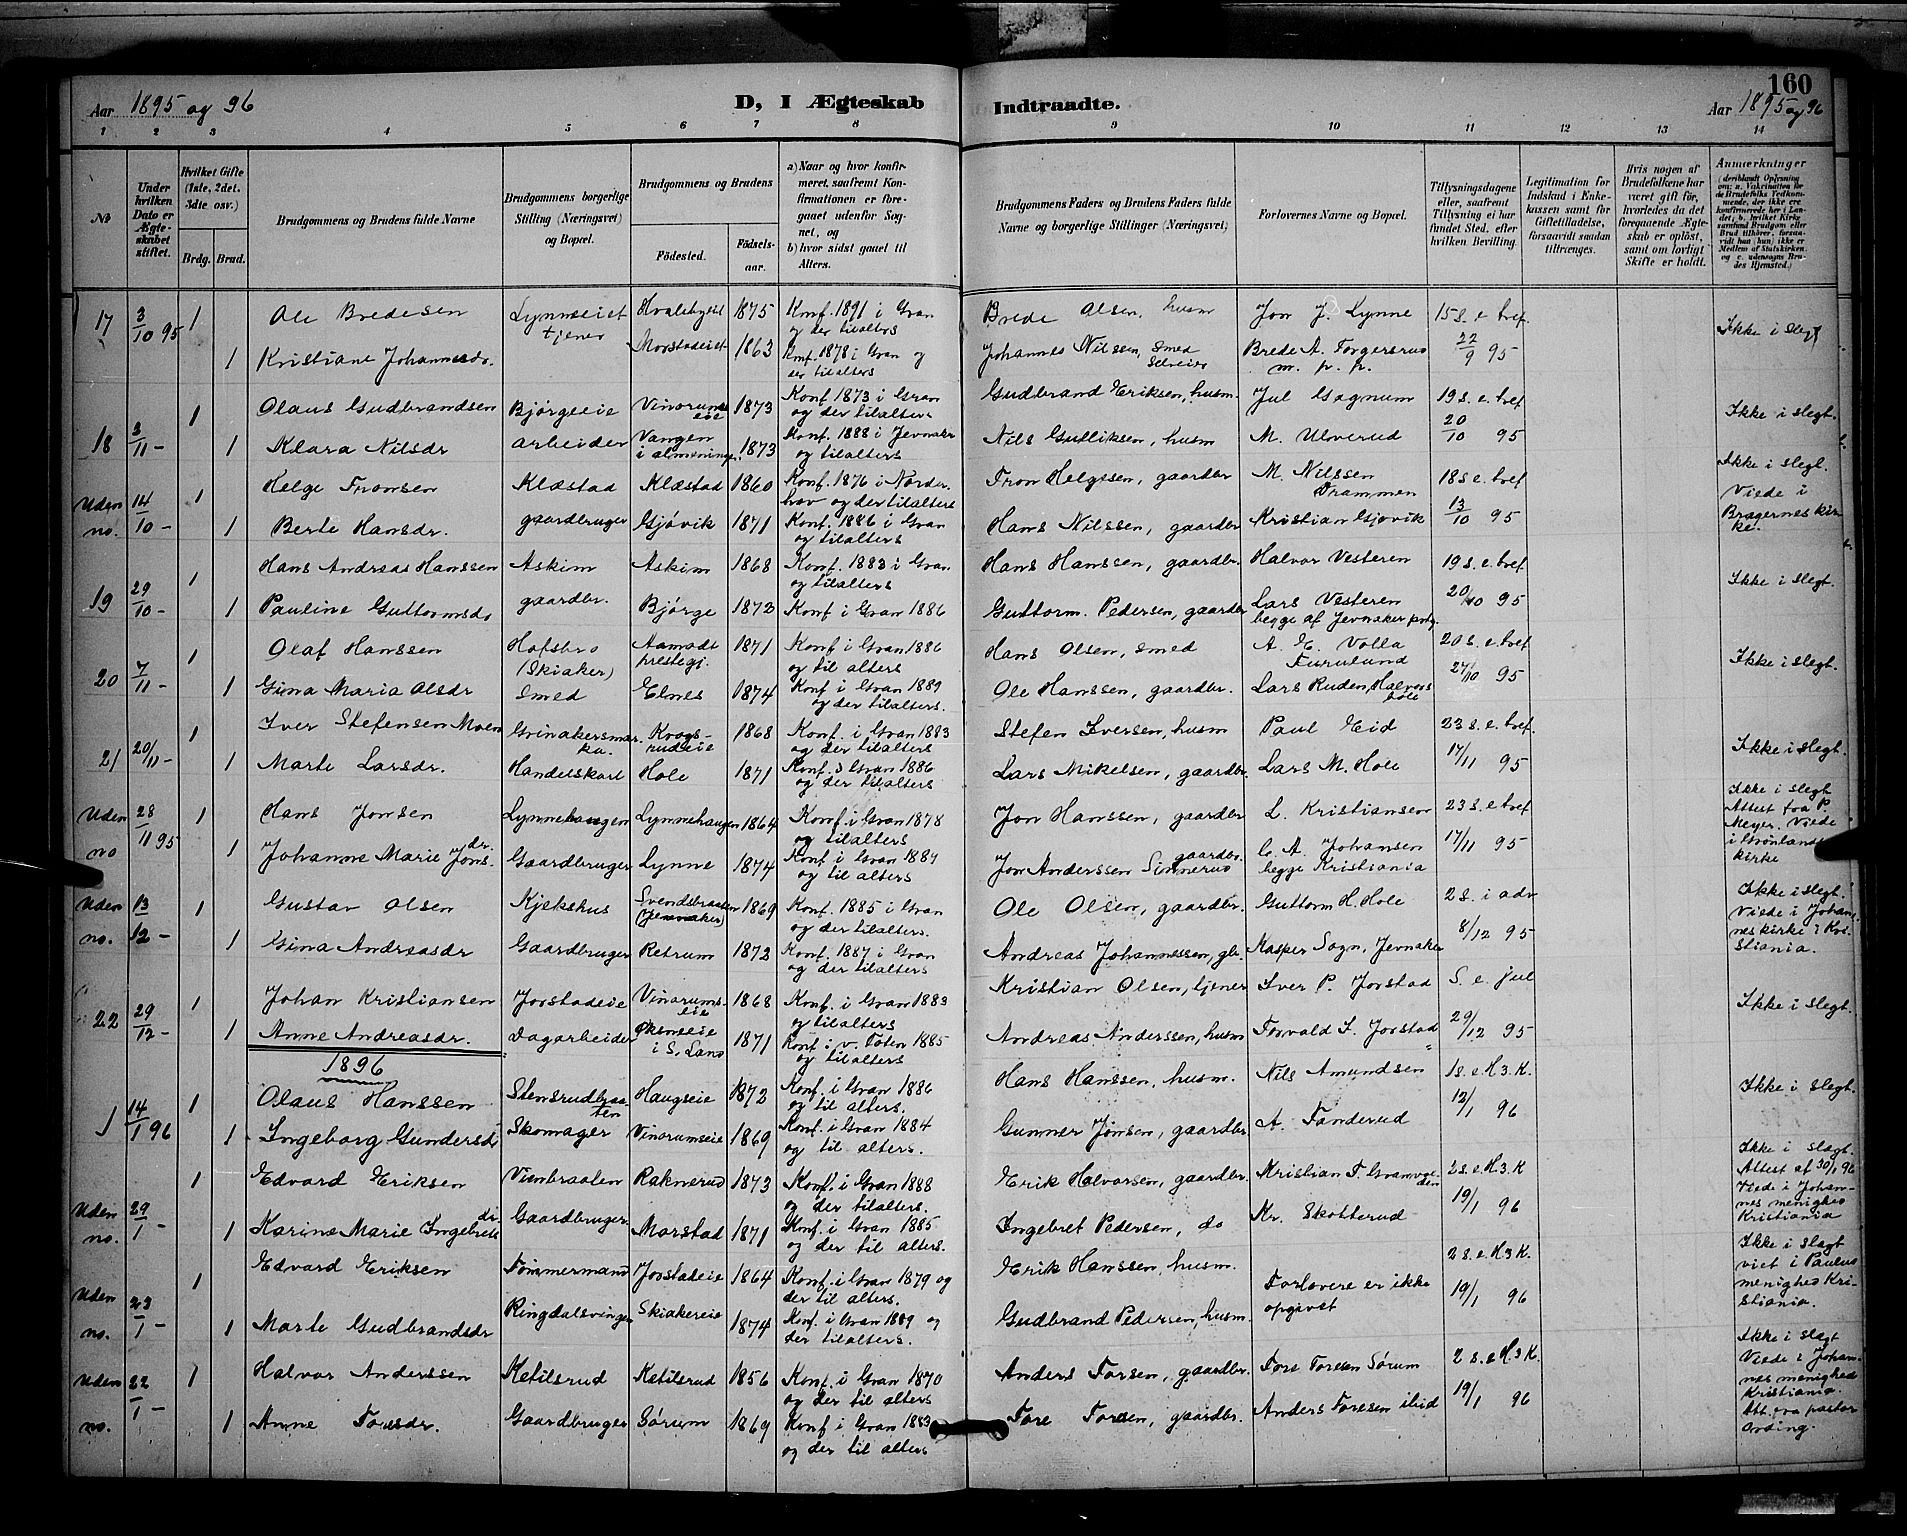 160
Aar 1895 og 96 D, I Ægteskab Indtraadte. Aar 1895 og 96
1 2 3 4 5 6 7 8 9 10 11 12 13 14
No
Under hvilken Dato er Ægteskabet stiftet.
Hvilket Gifte (1ste, 2det, 3die osv.)
Brdg. Brud.
Brudgommens og Brudens fulde Navne
Brudgommens borgerlige Stilling (Næringsvei) og Bopæl.
Brudgommens og Brudens
Födested. Födselsaar.
a) Naar og hvor konfirmeret, saafremt Konfirmationen er foregaaet udenfor Sognet, og
b) hvor sidst gaaet til Alters.
Brudgommens Faders og Brudens Faders fulde Navne og borgerlige Stillinger (Næringsvei)
Forlovernes Navne og Bopæl.
Tillysningsdagene eller, saafremt Tillysning ei har fundet Sted, efter hvilken Bevilling.
Legitimation for Indskud i Enkekassen samt for Giftetilladelse, forsaavidt saadan tiltrænges.
Hvis nogen af Brudefolkene har været gift för, hvorledes da det foregaaende Ægteskab er oplöst, samt om lovligt Skifte er holdt.
Anmærkninger (deriblandt Oplysning om: a. Vakcination for de Brudefolks Vedkommende, der ikke ere konfirmerede her i Landet, b. hvilket Kirkesamfund Brudgom eller Brud tilhörer, forsaavidt han (hun) ikke er Medlem af Statskirken, og c. udensogns Brudes Hjemsted.)
17 3/10 95 1 Ole Bredesen Lynneeiet tjener Hvalebyeiet 1875 Konf. 1891 i Gran og der tilalters Brede Olsen, husm Jon J. Lynne 15 s. e. tref. 22/9 95 Ikke i slegt
1 Kristiane Johannesdr. Morstadeiet 1863 Konf. 1878 i Gran og der til alters Johannes Nilsen, smed Selveier Brede A. Torgersrud m. p. p.
18 3/11 – 1 Olaus Gudbrandsen Bjørgeeie arbeider Vinorumseie 1873 Konf. 1873 i Gran og der tilalters Gudbrand Eriksen, husm. Jul Gagnum 19 s. e. tref 20/10 95 Ikke i slegt.
1 Klara Nilsdr Vangen i almeninge. 1873 Konf. 1888 i Jevnaker og tilalters Nils Gulliksen, husm M. Ulverud
Uden no. 14/10 – 1 Helge Tronsen Klæstad gaardbruger Klæstad 1860 Konf. 1876 i Norderhov og der tilalters Tron Helgesen, gaardbr M. Nilssen Drammen 18 s e. tref 13/10 95 Ikke i slegt. Viede i Bragernes kirke.
1 Berte Hansdr. Gjövik 1871 Konf. 1886 i Gran og tilalters Hans Nilssen, gaardbr Kristian Gjövik
19 29/10 – 1 Hans Andreas Hanssen Askim gaardbr. Askim 1868 Konf. 1883 i Gran og tilalters Hans Hanssen, gaardbr. Halvor Vesteren 19 s. e. tref. 20/10 95 Ikke i slegt.
1 Pauline Guttormsdr Bjørge 1872 Konf. i Gran 1886 Guttorm Pedersen, gaardbr Lars Vesteren begge af Jevnaker prstg.
20 7/11 – 1 Olaf Hanssen Hofsbro (Skiaker) Smed Aamodt prestegj. 1871 Konf. i Gran 1886 og til alters Hans Olsen, smed A. E. Volla Furulund 20 s. e. tref 27/10 95 Ikke i slegt.
1 Gina Maria Olsdr Elnes 1874 Konf. i Gran 1889 og der tilalters. Ole Hanssen, gaardbr. Lars Ruden, Halvors hole
21 20/11 – 1 Iver Stefensen Moen Grinakersmarka. Handelskarl Krogsrudeie 1868 Konf. i Gran 1883 og der tilalters Stefen Iversen, husm Paul Eid 23 s. e. tref. 17/11 95 Ikke i slegt.
1 Marte Larsdr. Hole 1871 Konf. i Gran 1886 og der tilalters Lars Mikelsen, gaardbr. Lars M. Hole
Uden no 28/11 95 1 Hans Jonsen Lynnehaugen Gaardbruger Lynnehaugen 1864 Konf. i Gran 1878 og tilalters Jon Hanssen, gaardbr L. Kristiansen 23 s. e tref 17/11 95 Ikke i slegt Attest fra P. Meyer. Viede i Grønlands kirke
1 Johanne Marie Jonsdr. Lynne 1874 Konf. i Gran 1889 og til alters Jon Anderssen Sinnerud gaardbr. C. A. Johansen begge Kristiania
Uden no. 13/12 – 1 Gustav Olsen Kjekshus Gaardbruger Svendsbraaten (Jevnaker) 1869 Konf. 1885 i Gran og der tilalters. Ole Olsen, gaardbr. Guttorm H. Hole 2 s. i adv 8/12 95 Ikke i slegt. Viede i Johanneskirke i Kristiania.
1 Gina Andreasdr Retrum 1872 Konf. 1887 i Gran og der tilalters Andreas Johannessen, gbr. Kasper Sogn, Jevnaker
22 29/12 – 1 Johan Kristiansen Jorstadeie Dagarbeider Vinorumseie 1868 Konf. i Gran 1883 og tilalters Kristian Olsen, tjener Iver P. Jorstad S. e. jul 29/12 95 Ikke i slegt.
1 Anne Andreasdr. i S. Land 1871 Konf. i v. Toten 1885 og tilalters Andreas Anderssen, husm Torvald I. Jorstad
1896
1 14/1 96 1 Olaus Hanssen Stensrudbraaten Skomager Haugseie 1872 Konf. i Gran 1886 og til alters. Hans Hanssen, husm. Nils Amundsen 1 s. e. H. 3. K. 12/1 96 Ikke i slegt.
1 Ingeborg Gundersdr Vinorumseie 1869 Konf. i Gran 1884 og til alters. Gunner Jonsen, gaardbr A. Tanderud
Uden no. 29/1 1 Edvard Eriksen Vienbraaten Gaardbruger Raknerud 1873 Konf. i Gran 1888 og der tilalters. Erik Halvorsen, gaardbr Kristian T. Granvolden 2 s. e. H. 3. K 19/1 96 Ikke i slegt. Attest af 30/1 96 Viede i Johannes menighed Kristiania
1 Karine Marie Ingebretsdr Morstad 1871 Konf. i Gran 1885 og der til alters. Ingebret Pedersen, do Kr. Skotterud
Uden no. 23/1 – 1 Edvard Eriksen Tømmermand Ringdalsvingen Jorstadeie 1864 Konf. i Gran 1879 og der til alters. Erik Hanssen, husm. Forlovere er ikke opgivet 2 s. e. H 3 K. 19/1 96 Ikke i slegt viet i Paulus menighed Kristiania.
1 Marte Gudbrandsdr Skiakereie 1874 Konf. i Gran 1889 og der tilalters. Gudbrand Pedersen, husm.
Uden no. 22/1 – 1 Halvor Anderssen Ketilsrud Gaardbruger Ketilsrud 1856 Konf. i Gran 1870 og der til alters Anders Torsen, gaardbr. Tore Toresen Sørum 2 s. e H 3 K. 19/1 96 Ikke i slegt Viede i Johannes menighed Kristiania. Att. fra pastor Ording.
1 Anne Toresdr. Sørum 1869 Konf. i Gran 1883 og der til alters Tore Toresen, gaardbr. Anders Toresen ibid